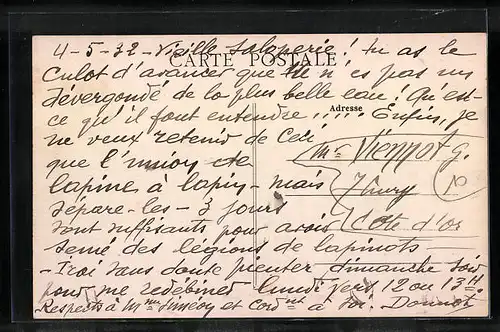 4-5-32 - Vieille saloperie ! tu as le
CARTE POSTALE
culot d'avancer que tu n'es pas un
dévergondé de la plus belle eau ! Qu'est-
ce qu'il faut entendre !!!!! Enfin, je
Adresse
ne veux retenir de ceci
que l' de
lapine à lapin - mais
sépare-les - 3 jours
sont suffisants pour avoir
semé des légions de lapinots -
Mr Viennot G.
Fleurey
Côte d'Or
- Irai sans doute dimanche soir
pour me redébiner lundi vers 12 ou 13 h.
Respects à Mme et Cordnt à toi. Donnot